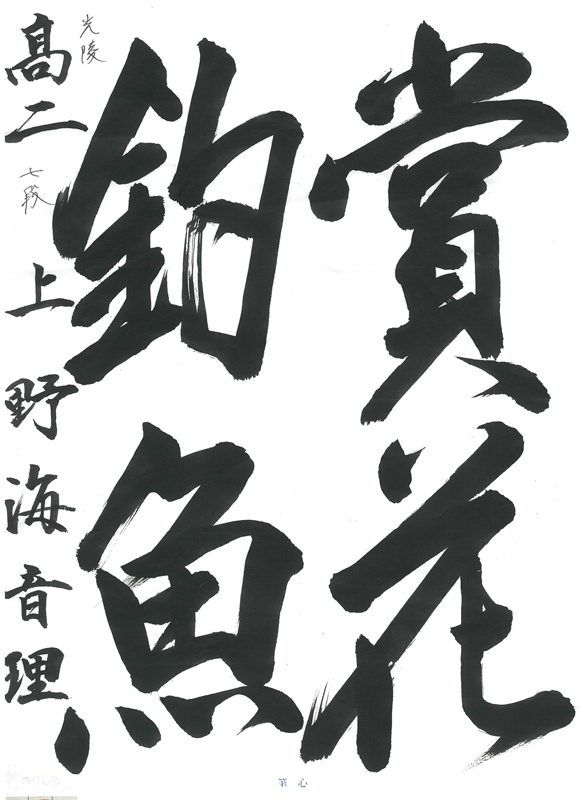 賞花
釣魚
光陵
高二 七段 上野海音理
筆心
のりしろ